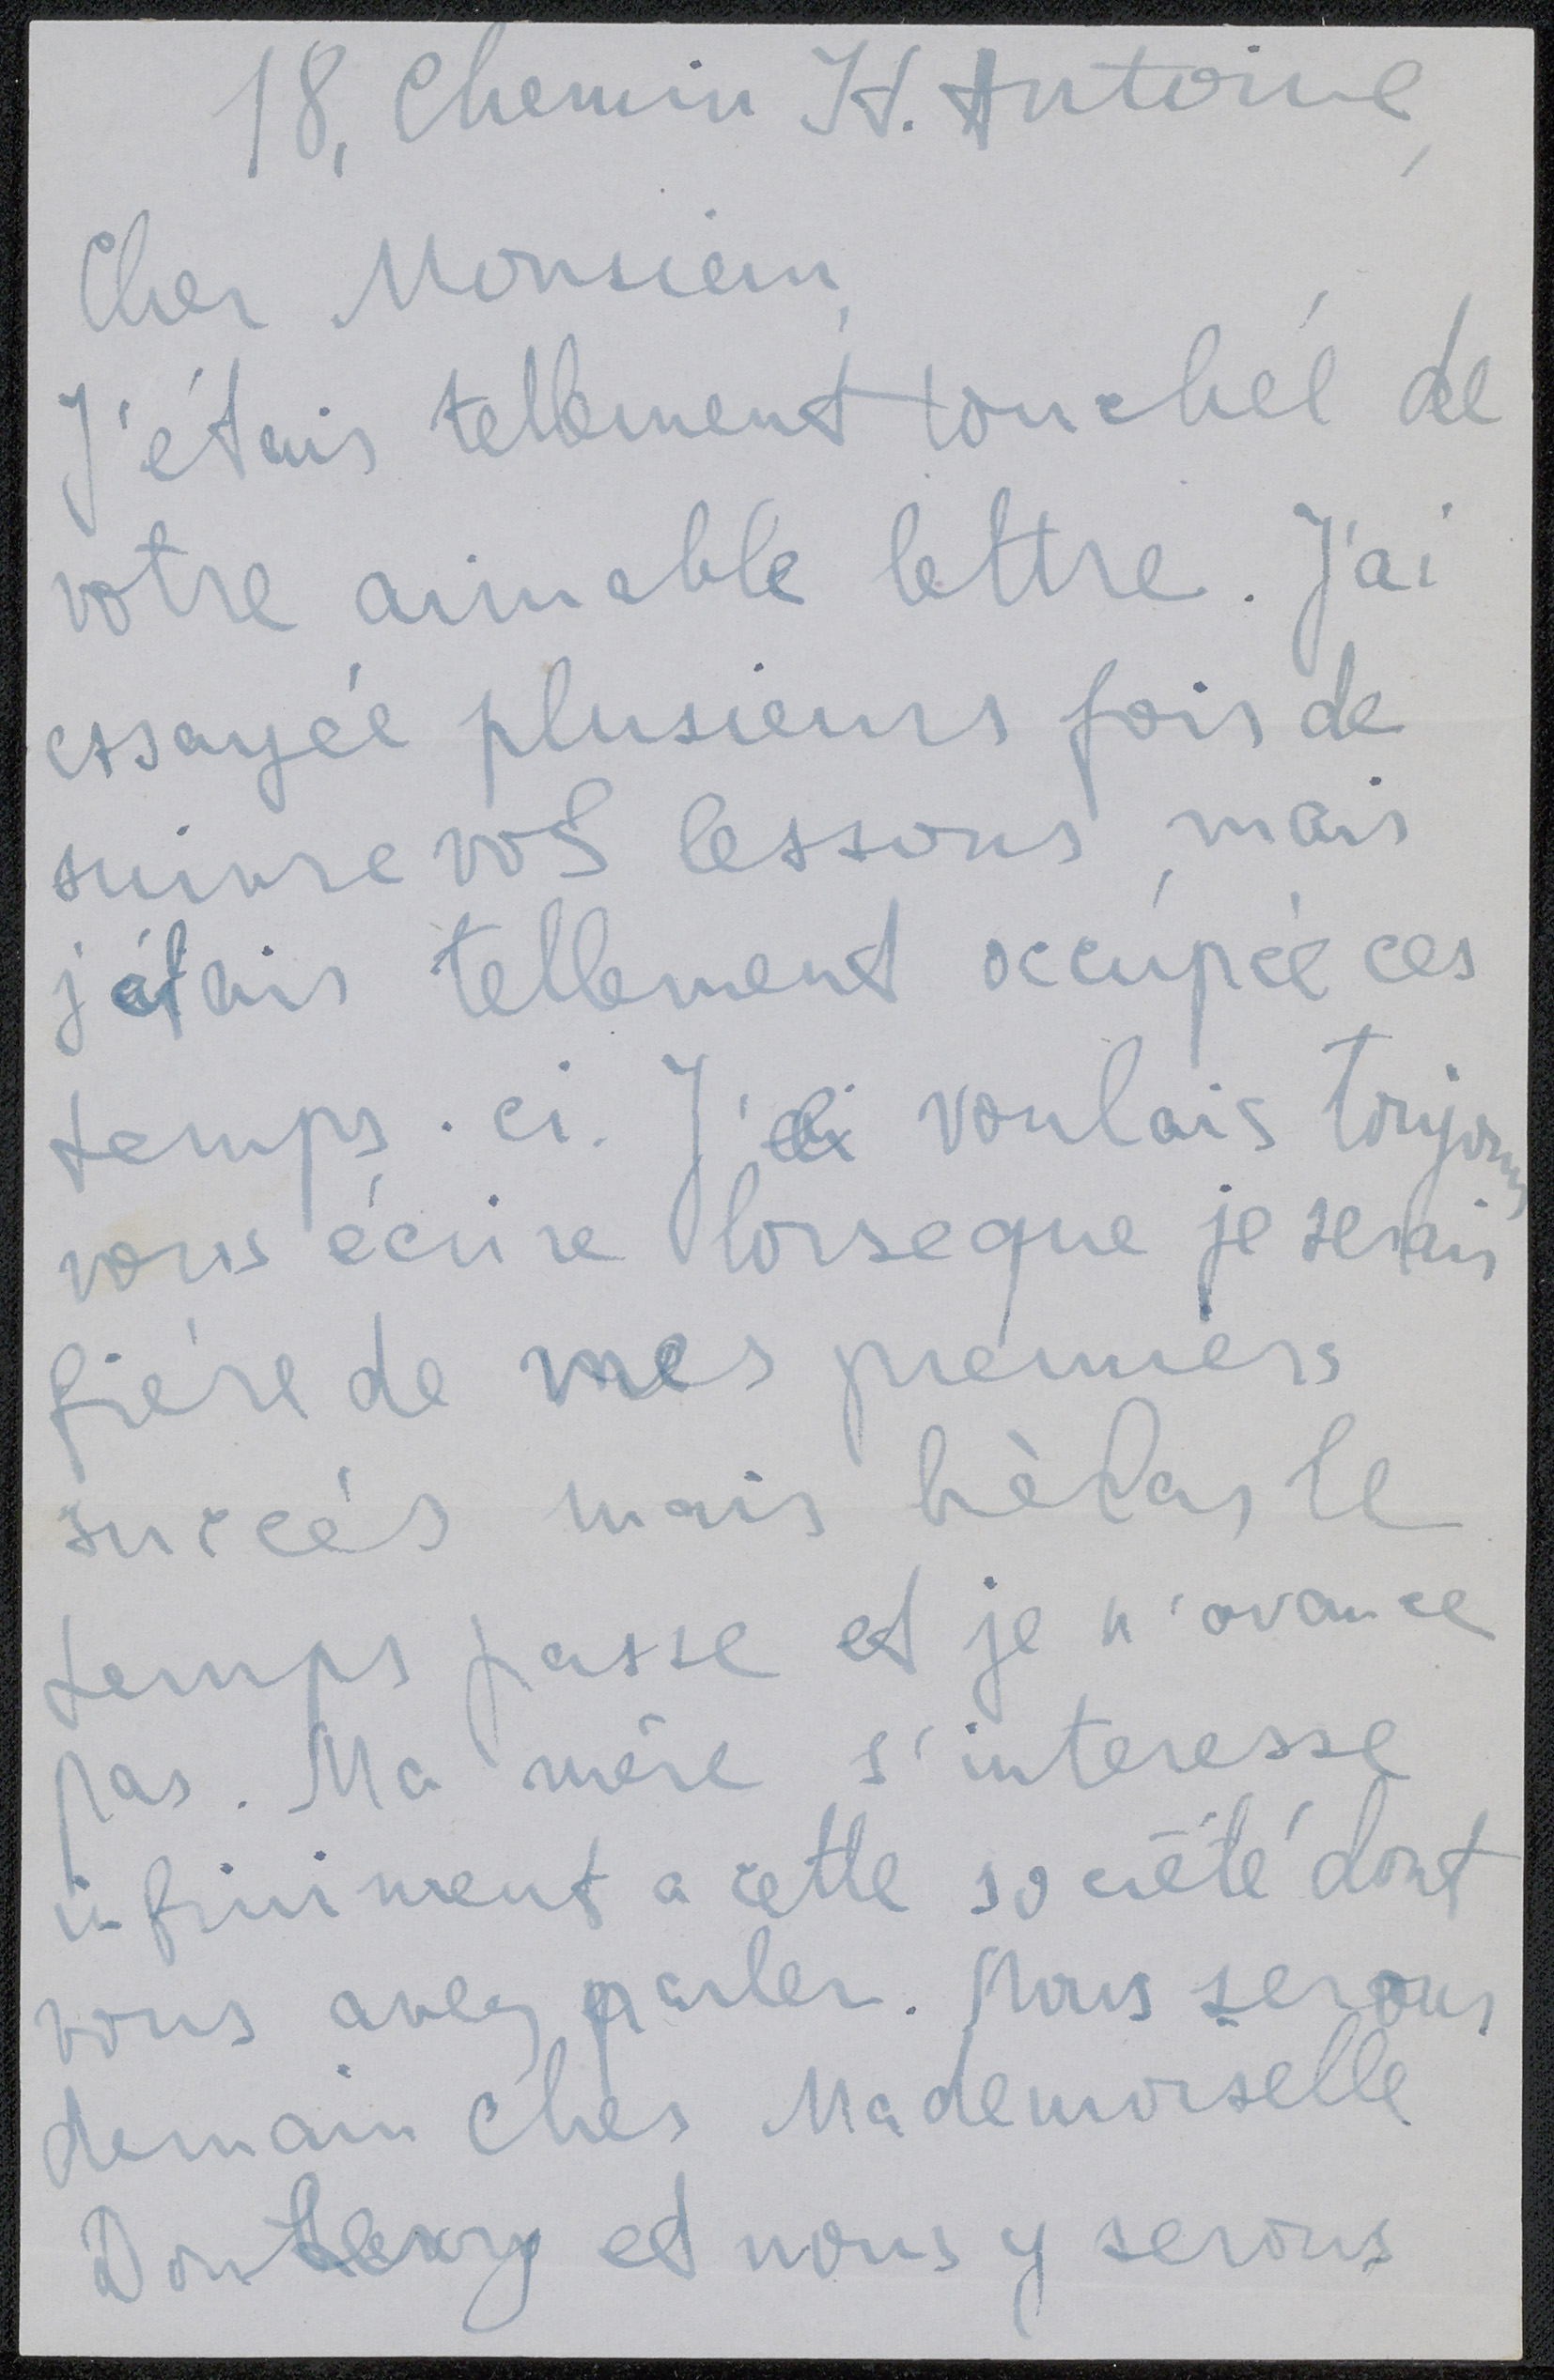 18, Chemin H. Antoine,
Cher Monsieur,
J'étais tellement touchéé de
votre aimable lettre. J'ai
essayéé plusieurs fois de
suivre voS lessons, mais
j'étais tellement occúpéé ces
temps-ci. J' voulais toujours
vous écrire lorseque je serais
fiére de mes premiers
succés mais hèlas le
temps passe et je n'avance
pas. Ma mére s'interesse
infiniment a cette société dont
vous avez parler. Nous serons
demain ches Mademoiselle
et nous y serons